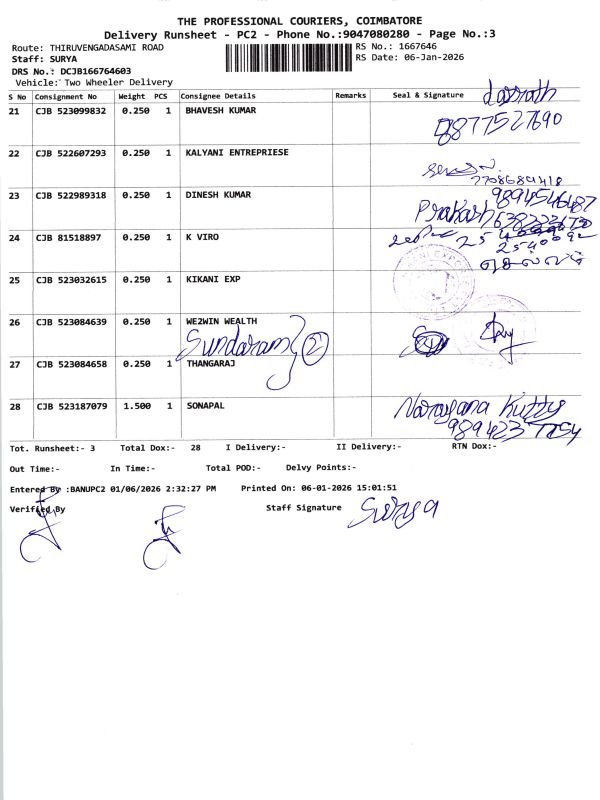 THE PROFESSIONAL COURIERS, COIMBATORE
Delivery Runsheet - PC2 - Phone No.:9047080280 - Page No.:3
Route: THIRUVENGADASAMI ROAD
RS No.: 1667646
Staff: SURYA
RS Date: 06-Jan-2026
DRS No.: DCJB166764603
Vehicle: Two Wheeler Delivery
S No Consignment No Weight PCS Consignee Details Remarks Seal & Signature
dasrath
21 CJB 523099832 0.250 1 BHAVESH KUMAR
8877527690
22 CJB 522607293 0.250 1 KALYANI ENTREPRIESE
7708684418
23 CJB 522989318 0.250 1 DINESH KUMAR
9894546487
Prakash
24 CJB 81518897 0.250 1 K VIRO
2540092
செல்லம்
25 CJB 523032615 0.250 1 KIKANI EXP
26 CJB 523084639 0.250 1 WE2WIN WEALTH
Sundaram 2
27 CJB 523084658 0.250 1 THANGARAJ
28 CJB 523187079 1.500 1 SONAPAL
Narayana Kutty
9894237754
Tot. Runsheet:- 3 Total Dox:- 28 I Delivery:- II Delivery:- RTN Dox:-
Out Time:- In Time:- Total POD:- Delvy Points:-
Entered By :BANUPC2 01/06/2026 2:32:27 PM Printed On: 06-01-2026 15:01:51
Verified By Staff Signature Surya